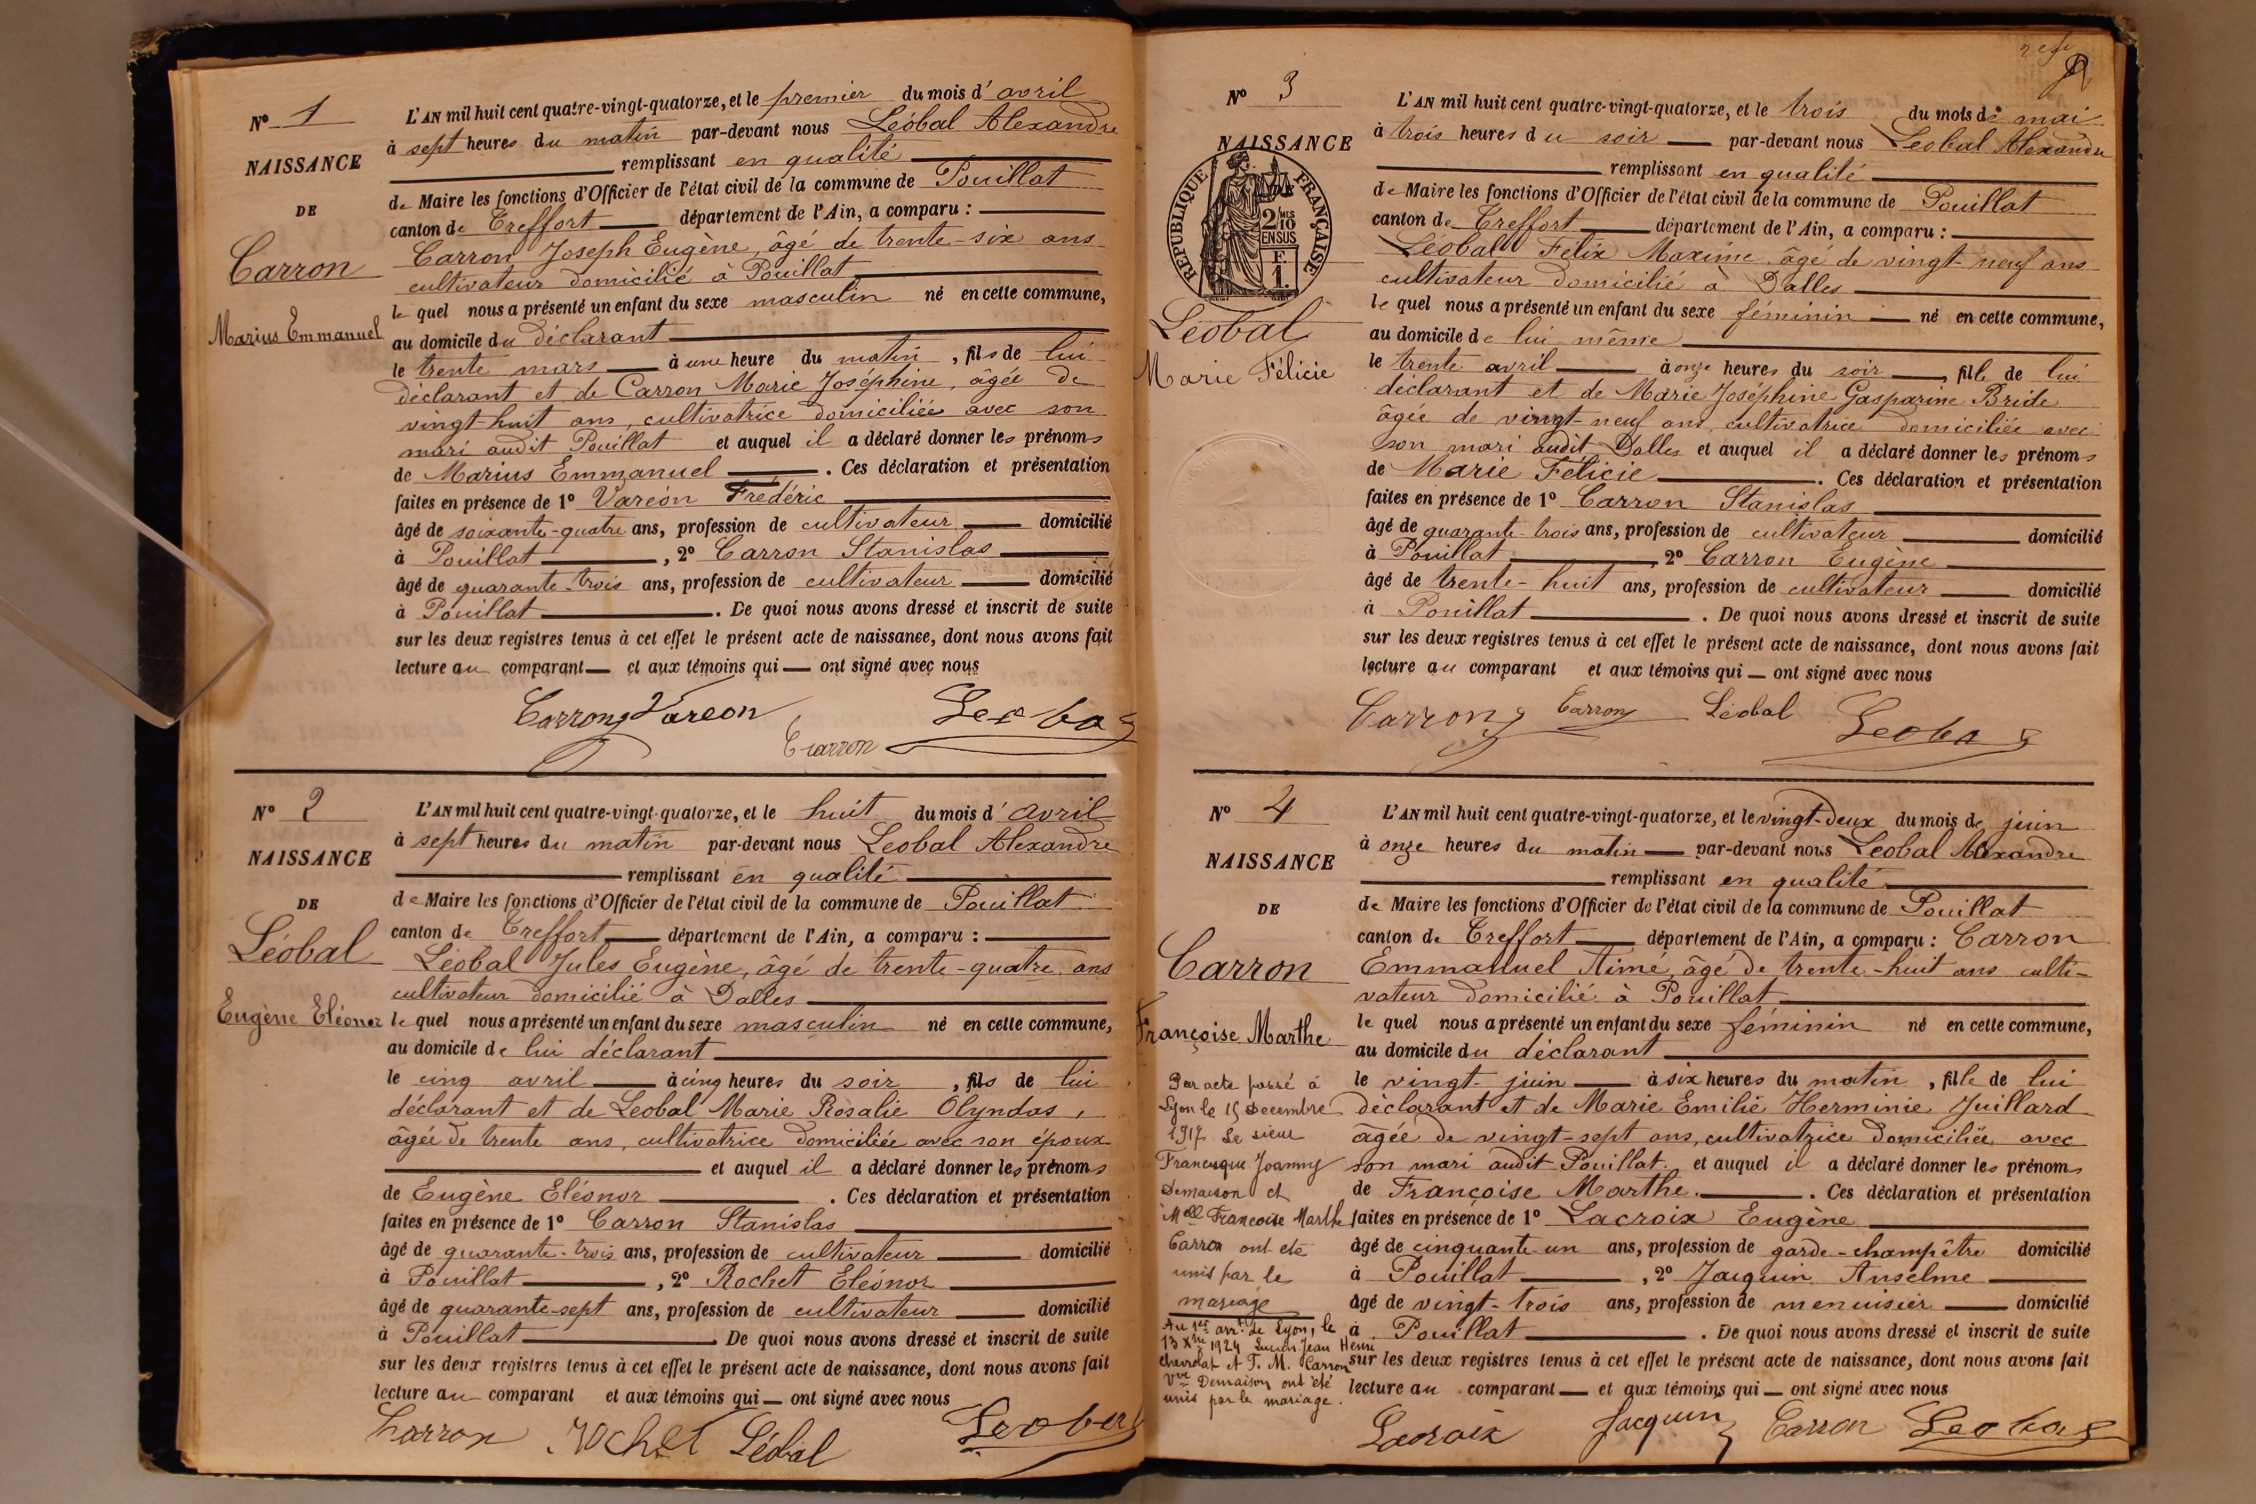 N° 1
NAISSANCE
DE
Carron
Marius Emmanuel
L'AN mil huit cent quatre-vingt-quatorze, et le premier du mois d'avril
à sept heures du matin par-devant nous Léobal Alexandre
remplissant en qualité
de Maire les fonctions d'Officier de l'état civil de la commune de Pouillat
canton de Treffort département de l'Ain, a comparu :
Carron Joseph Eugène, âgé de trente-six ans
cultivateur domicilié à Pouillat
le quel nous a présenté un enfant du sexe masculin né en cette commune,
au domicile du déclarant
le trente mars à une heure du matin, fils de lui
déclarant et de Carron Marie Joséphine, âgée de
vingt-huit ans, cultivatrice domiciliée avec son
mari audit Pouillat et auquel il a déclaré donner les prénoms
de Marius Emmanuel. Ces déclaration et présentation
faites en présence de 1° Varéon Frédéric
âgé de soixante-quatre ans, profession de cultivateur domicilié
à Pouillat, 2° Carron Stanislas
âgé de quarante-trois ans, profession de cultivateur domicilié
à Pouillat. De quoi nous avons dressé et inscrit de suite
sur les deux registres tenus à cet effet le présent acte de naissance, dont nous avons fait
lecture au comparant et aux témoins qui ont signé avec nous
Carron Vareon Leobal
Carron
N° 2
NAISSANCE
DE
Léobal
Eugène Eléonor
L'AN mil huit cent quatre-vingt-quatorze, et le huit du mois d'avril
à sept heures du matin par-devant nous Léobal Alexandre
remplissant en qualité
de Maire les fonctions d'Officier de l'état civil de la commune de Pouillat
canton de Treffort département de l'Ain, a comparu :
Léobal Jules Eugène, âgé de trente-quatre ans
cultivateur domicilié à Dalles
le quel nous a présenté un enfant du sexe masculin né en cette commune,
au domicile de lui déclarant
le cinq avril à cinq heures du soir, fils de lui
déclarant et de Leobal Marie Rosalie Olyndas,
âgée de trente ans, cultivatrice domiciliée avec son époux
et auquel il a déclaré donner les prénoms
de Eugène Eléonor. Ces déclaration et présentation
faites en présence de 1° Carron Stanislas
âgé de quarante-trois ans, profession de cultivateur domicilié
à Pouillat, 2° Rochet Eléonor
âgé de quarante-sept ans, profession de cultivateur domicilié
à Pouillat. De quoi nous avons dressé et inscrit de suite
sur les deux registres tenus à cet effet le présent acte de naissance, dont nous avons fait
lecture au comparant et aux témoins qui ont signé avec nous
Carron Rochet Léobal Leobal
N° 3
NAISSANCE
DE
RÉPUBLIQUE FRANÇAISE
2/10 mes
EN SUS
F.
1.
Léobal
Marie Félicie
L'AN mil huit cent quatre-vingt-quatorze, et le trois du mois de mai
à trois heures du soir par-devant nous Leobal Alexandre
remplissant en qualité
de Maire les fonctions d'Officier de l'état civil de la commune de Pouillat
canton de Treffort département de l'Ain, a comparu :
Léobal Félix Maxime, âgé de vingt-neuf ans
cultivateur domicilié à Dalles
le quel nous a présenté un enfant du sexe féminin né en cette commune,
au domicile de lui même
le trente avril à onze heures du soir, fille de lui
déclarant et de Marie Joséphine Gasparine Bride
âgée de vingt-neuf ans, cultivatrice domiciliée avec
son mari audit Dalles et auquel il a déclaré donner les prénoms
de Marie Félicie. Ces déclaration et présentation
faites en présence de 1° Carron Stanislas
âgé de quarante-trois ans, profession de cultivateur domicilié
à Pouillat, 2° Carron Eugène
âgé de trente-huit ans, profession de cultivateur domicilié
à Pouillat. De quoi nous avons dressé et inscrit de suite
sur les deux registres tenus à cet effet le présent acte de naissance, dont nous avons fait
lecture au comparant et aux témoins qui ont signé avec nous
Carron Carron Léobal Leobal
N° 4
NAISSANCE
DE
Carron
Françoise Marthe
Par acte passé à
Lyon le 15 Decembre
1917 Le sieur
Francisque Joanny
Demaison et
Melle Françoise Marthe
Carron ont été
unis par le
mariage
Au 1er arrt de Lyon, le
13 Xbre 1924 Lucien Jean Henri
Chevrolat et F. M. Carron
Vve Demaison ont été
unis par le mariage.
L'AN mil huit cent quatre-vingt-quatorze, et le vingt-deux du mois de juin
à onze heures du matin par-devant nous Leobal Alexandre
remplissant en qualité
de Maire les fonctions d'Officier de l'état civil de la commune de Pouillat
canton de Treffort département de l'Ain, a comparu : Carron
Emmanuel Aimé, âgé de trente-huit ans culti-
vateur domicilié à Pouillat
le quel nous a présenté un enfant du sexe féminin né en cette commune,
au domicile du déclarant
le vingt juin à six heures du matin, fille de lui
déclarant et de Marie Emilie Herminie Juillard
âgée de vingt-sept ans, cultivatrice domiciliée avec
son mari audit Pouillat. et auquel il a déclaré donner les prénoms
de Françoise Marthe. Ces déclaration et présentation
faites en présence de 1° Lacroix Eugène
âgé de cinquante-un ans, profession de garde-champêtre domicilié
à Pouillat, 2° Jacquin Anselme
âgé de vingt-trois ans, profession de menuisier domicilié
à Pouillat. De quoi nous avons dressé et inscrit de suite
sur les deux registres tenus à cet effet le présent acte de naissance, dont nous avons fait
lecture au comparant et aux témoins qui ont signé avec nous
Lacroix Jacquin Carron Leobal